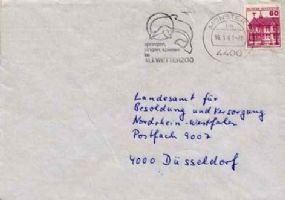 springen,
singen, spielen
im
ALLWETTERZOO
MÜNSTER
4400
80
Landesamt für
Besoldung und Versorgung
Nordrhein-Westfalen
Postfach 9007
4000 Düsseldorf